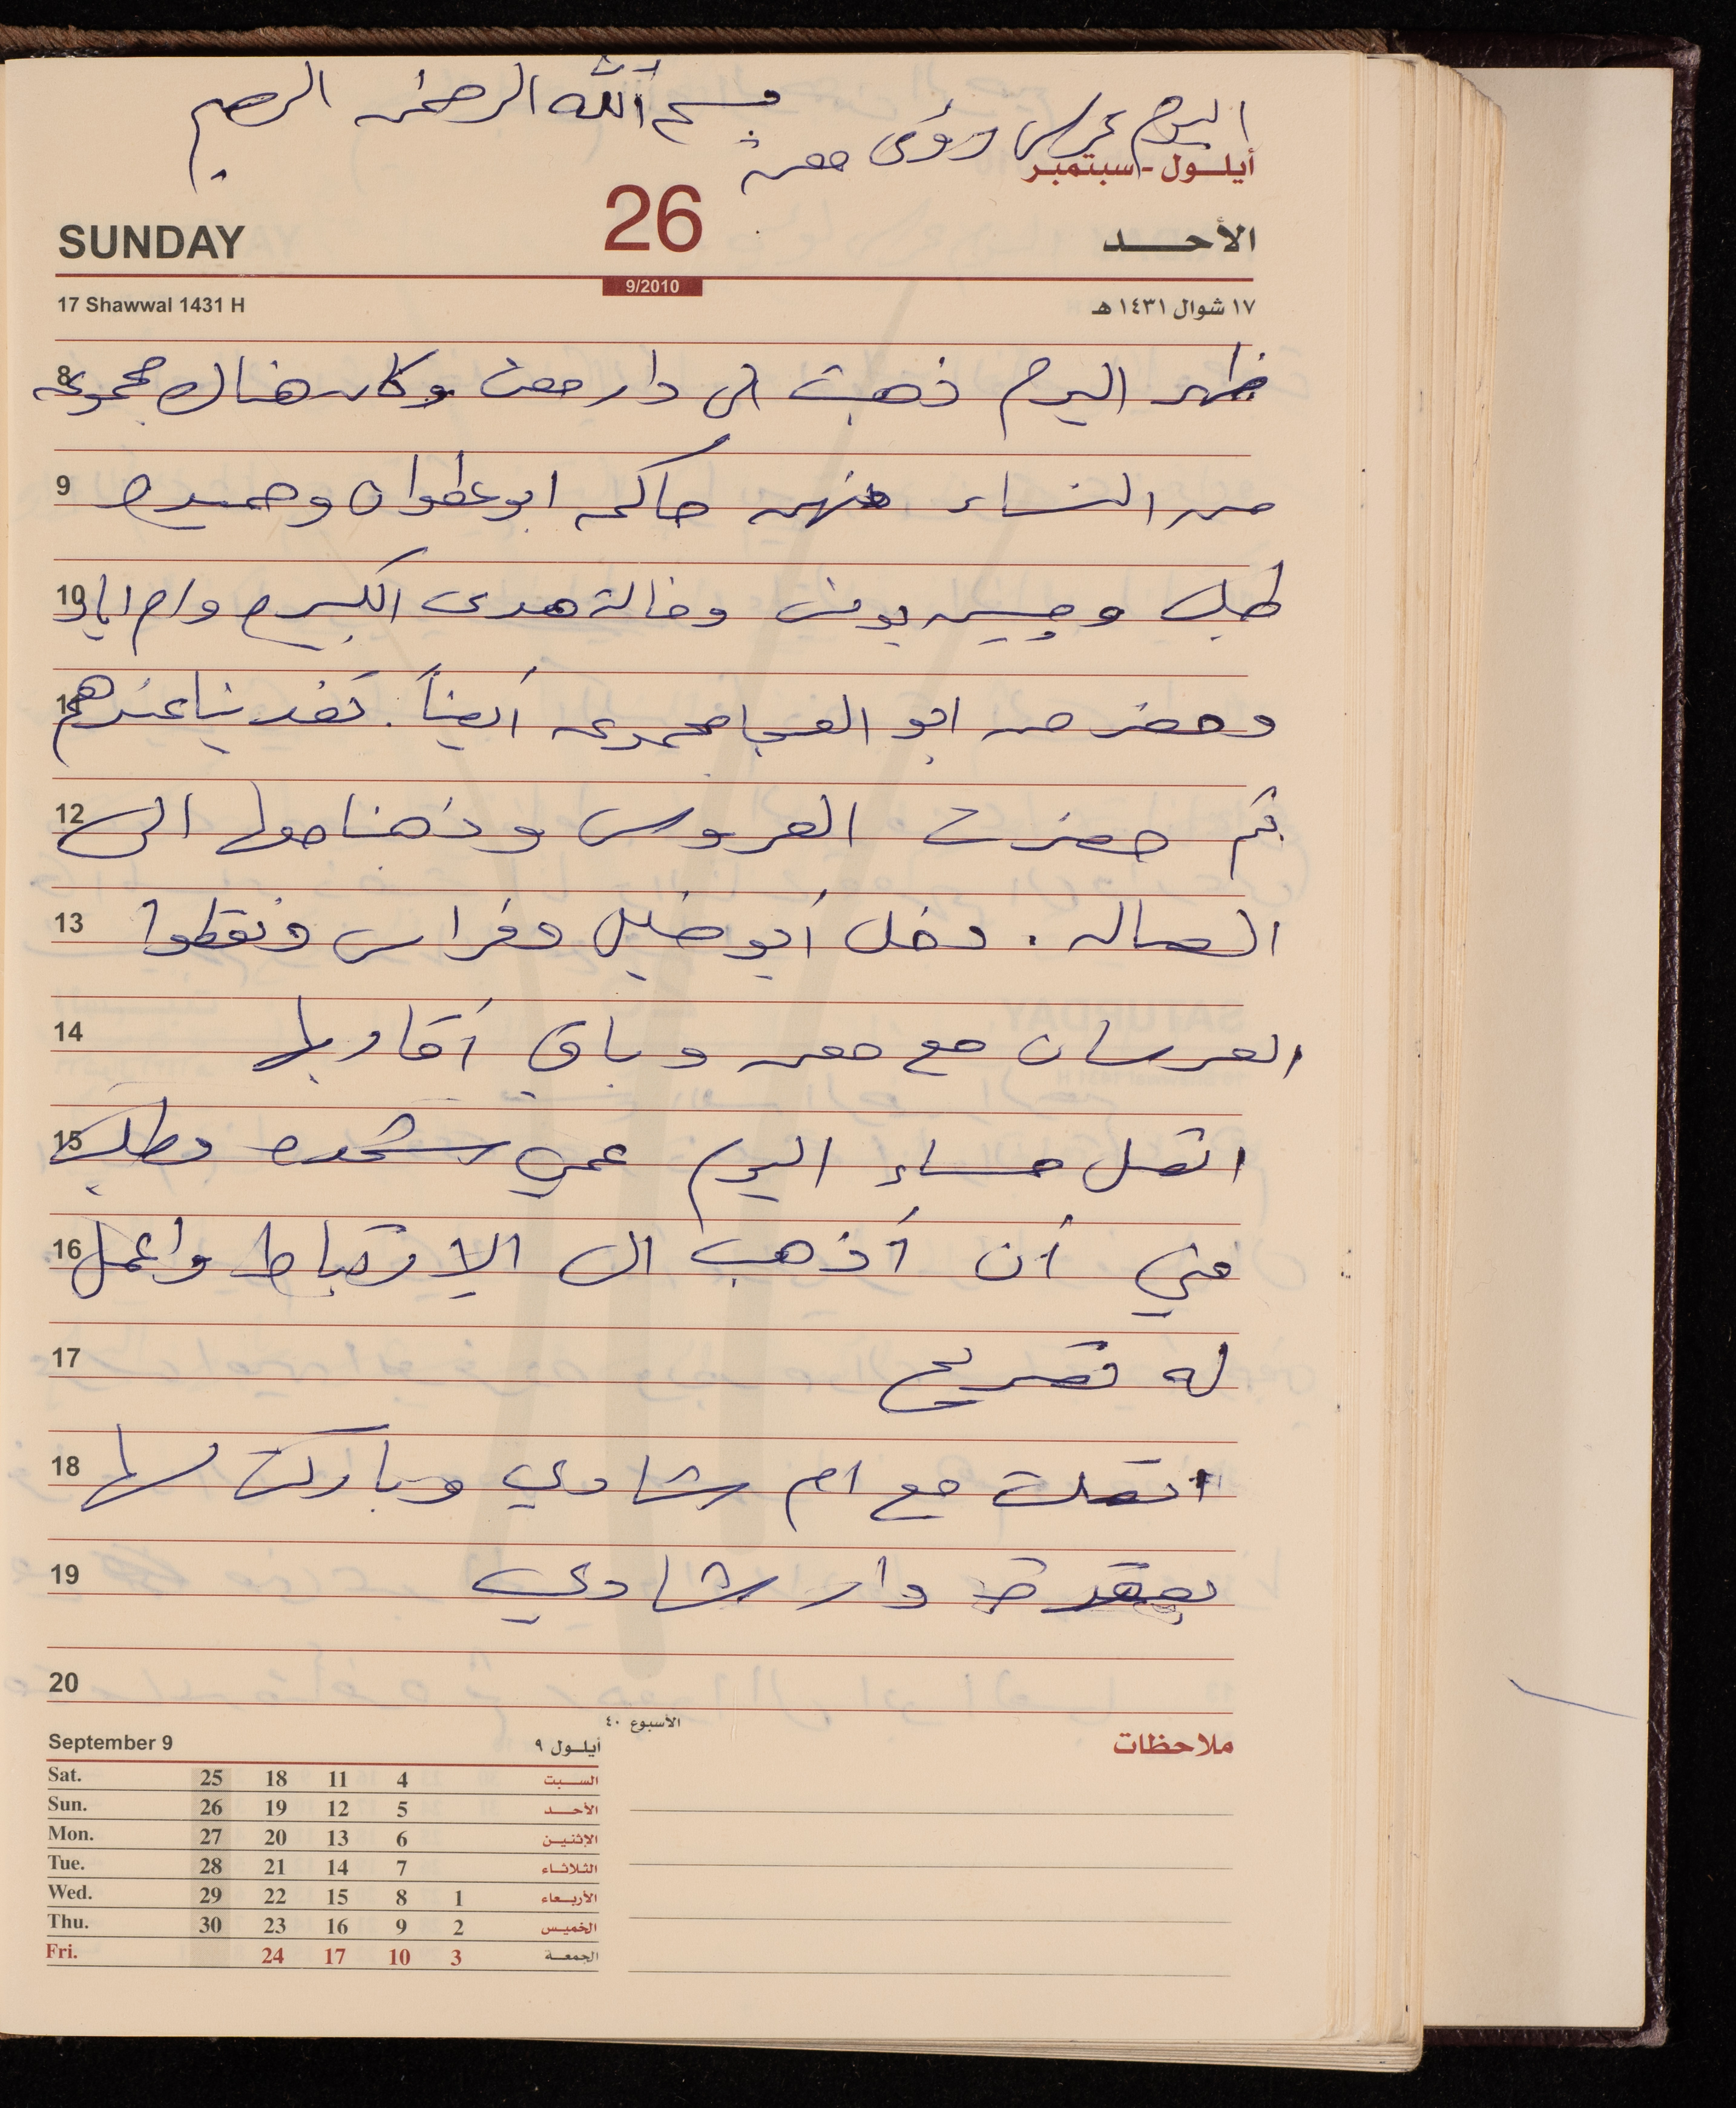 بسم الله الرحمن الرحيم
اليوم عرس رؤى معن
أيلـول - سبتمبر
SUNDAY 26 الأحـد
17 Shawwal 1431 H 9/2010 ١٧ شوال ١٤٣١ هـ
8 ظهر اليوم ذهبت الى دار معن وكان هناك مجموعه
9 من النساء منهن حاكمه ابو عطوان وحميده
10 طبل و وخالة هدى الكبيره وام اياد
وحضر من ابو العبا مجموعه أيضاً. تغدينا عندهم
12 ثم حضرت العروس وذهبنا حولها الى
13 الصاله . دخل أبو خليل وفراس ونقطوا
14 العرسان مع معن وباقي أقاربها
15 اتصل مساء اليوم عمي شحده وطلب
16 مني أن أذهب الى الارتباط واعمل
17 له تصريح
18 اتصلت مع ام شادي وباركت لها
19 بعقد دار شادي
20
الأسبوع ٤٠
ملاحظات
September 9 أيلـول ٩
Sat. 25 18 11 4 السـبت
Sun. 26 19 12 5 الأحـد
Mon. 27 20 13 6 الإثنيـن
Tue. 28 21 14 7 الثـلاثـاء
Wed. 29 22 15 8 1 الأربـعاء
Thu. 30 23 16 9 2 الخميـس
Fri. 24 17 10 3 الجمعـة